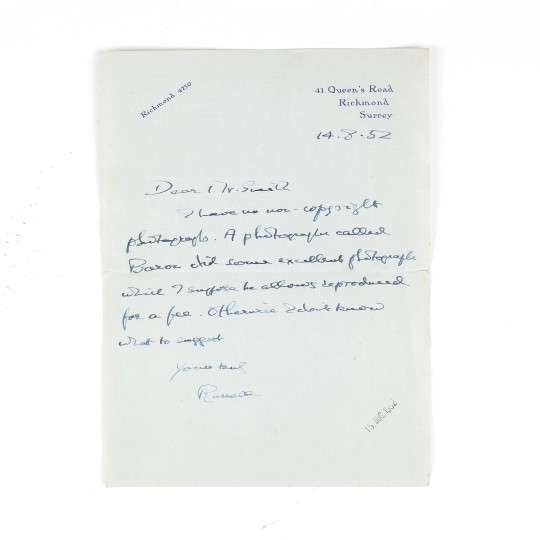 Richmond 4230
41 Queen's Road
Richmond
Surrey
14.8.52
Dear Mr. Smith
I have no non-copyright
photographs. A photographer called
Baron did some excellent photographs
which I suppose he allows reproduced
for a fee. Otherwise I don't know
what to suggest
Yours truly
Russell
15 AUG 1952